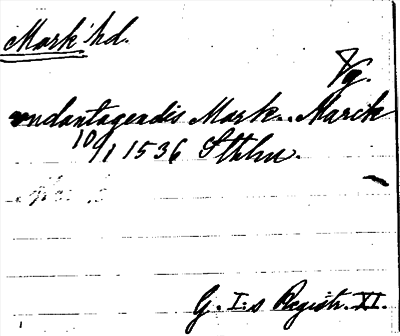 Mark hd.
Vg.
undantagendis Mark.. Marck
10/1 1536 Sthlm.
G. I:s Registr. XI.